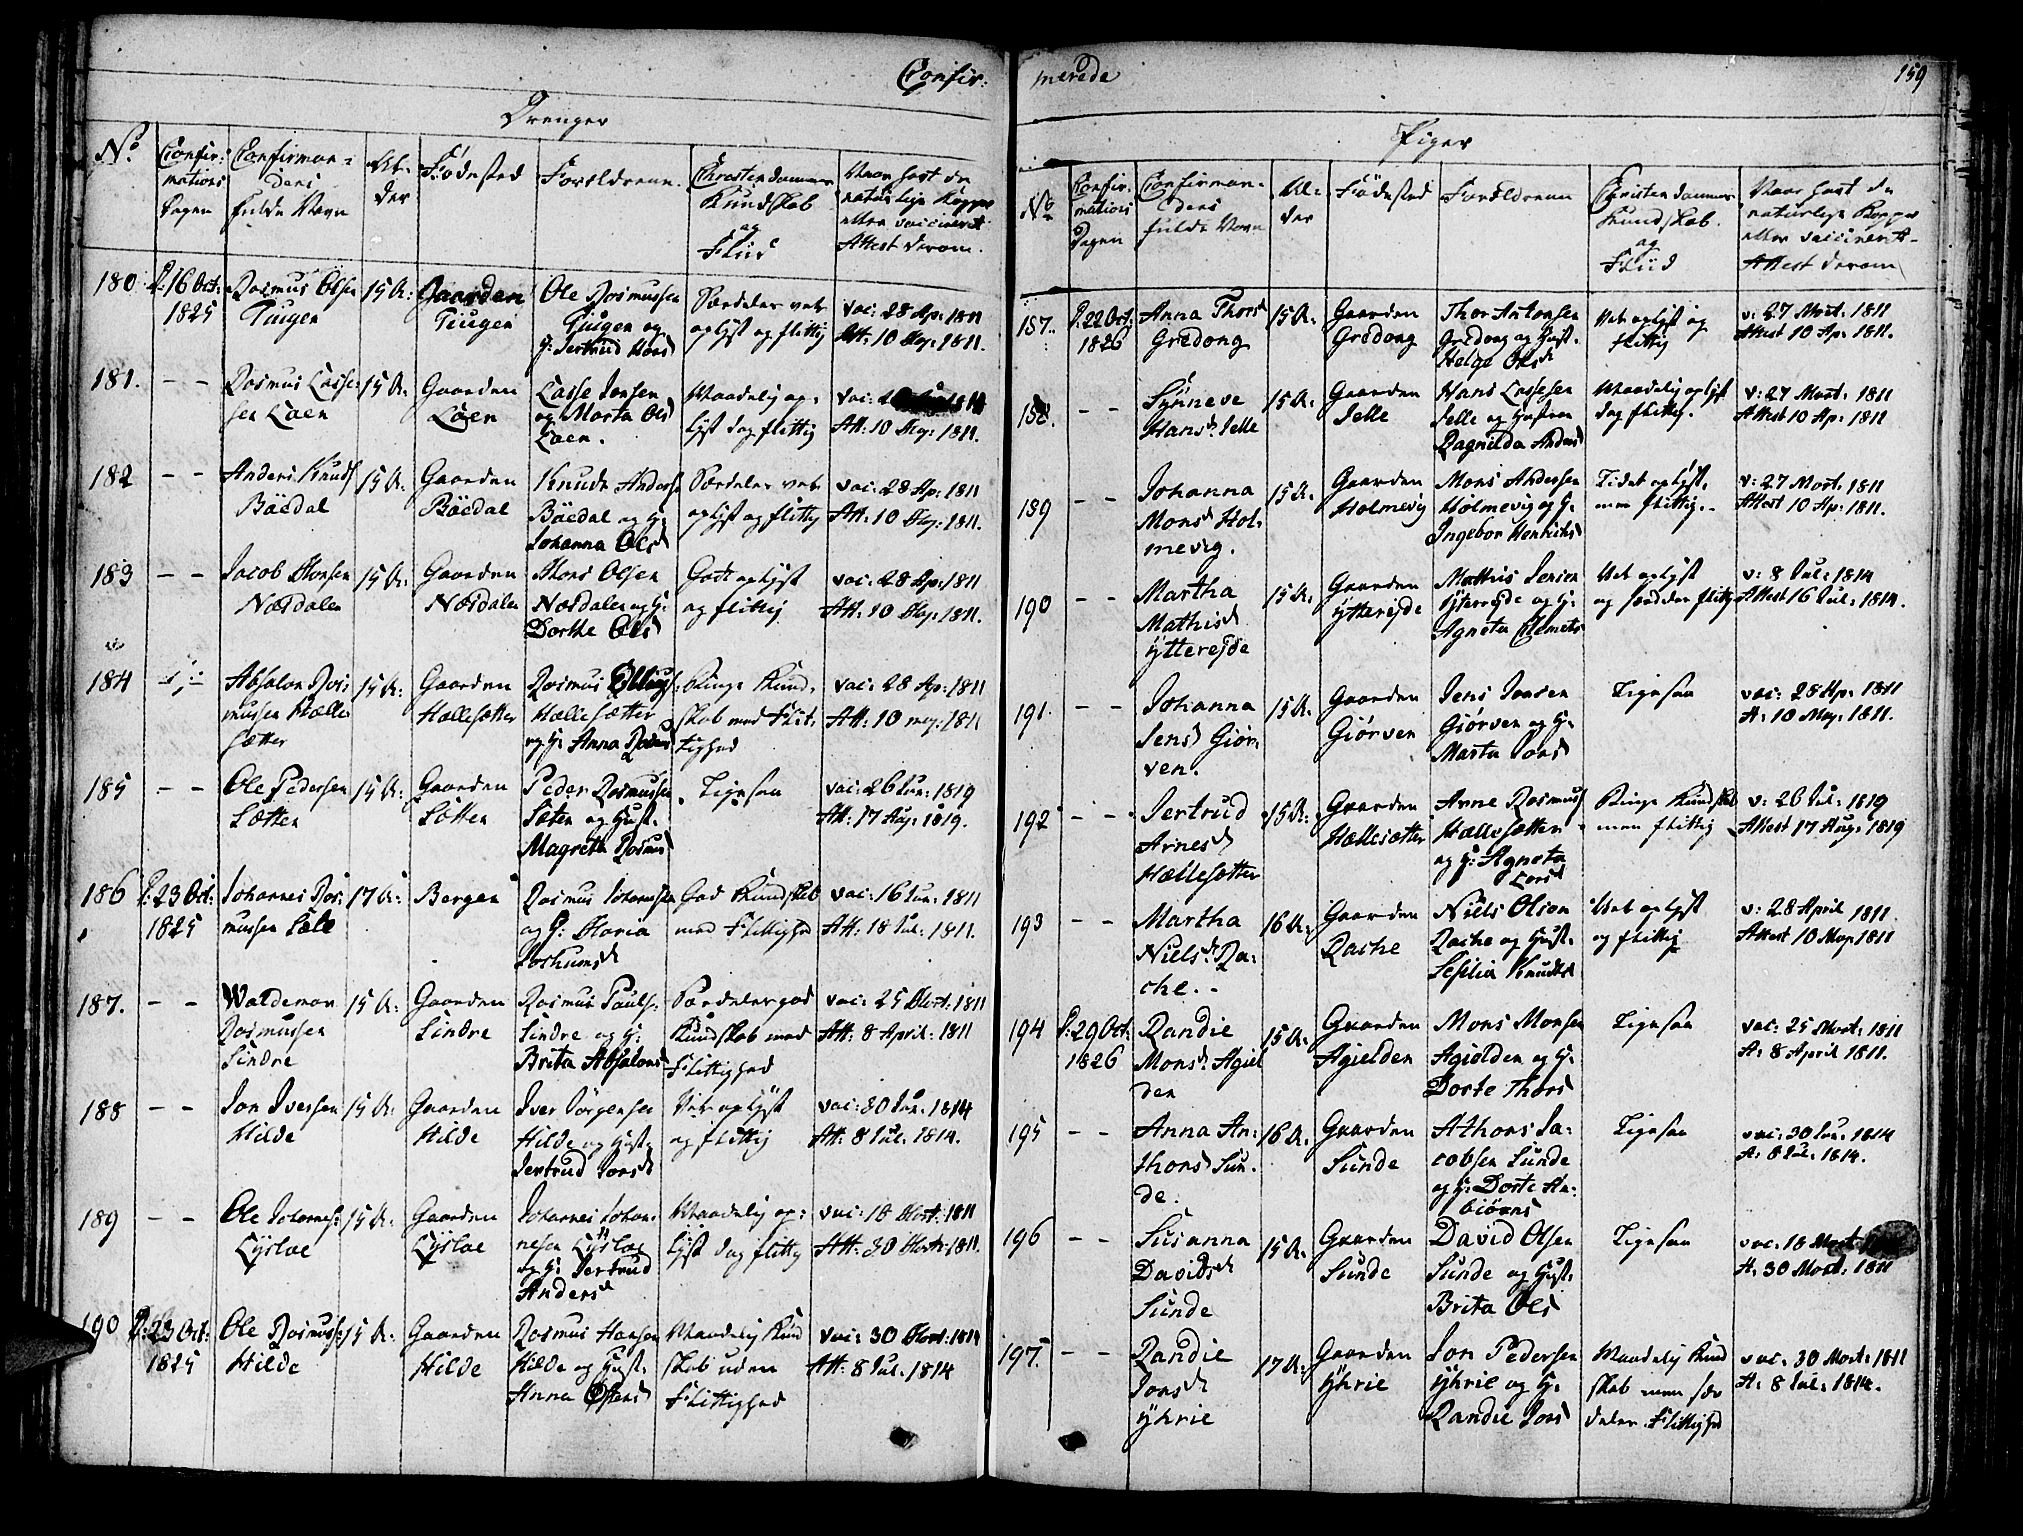 Confir: merede
159
Drenger
No
Confir:
mations
Dagen
Confirman=
dens
fulde Navn
Al-
der
Födested
Forældrene.
Christendoms
Kundskab
og
Fliid
Naar havt de
naturlige Kopper
eller vaccineret
Attest derom.
180
D: 16 Oct:
1825
Rasmus Olsen
Tiugen
15 A:
Gaarden
Tiugen
Ole Rasmussen
Tiugen og
H: Jertrud Hans d
Særdeles vel
oplyst og flittig
vac: 28 Ap: 1811
Att: 10 May: 1811.
181.
- -
Rasmus Lasse-
sen Loen
15 A:
Gaarden
Loen
Lasse Jensen
og Marta Ols d
Loen.
Maadelig op-
lyst dog flittig
vac: 1811
Att: 10 May: 1811.
182
- -
Anders Knuds
Bödal
15 A:
Gaarden
Bödal
Knude Anders
Bödal og H:
Johanna Ols d
Særdeles vel
oplyst og flittig
vac: 28 Ap: 1811
Att: 10 May: 1811.
183
- -
Jacob Monsen
Næsdalen
15 A:
Gaarden
Næsdalen
Mons Olsen
Næsdalen og H:
Dorthe Ols d
Godt oplyst
og flittig
vac: 28 Ap: 1811
Att: 10 May: 1811.
184
- -
Absalon Ras-
mussen Hælle
sætter
15 A:
Gaarden
Hællesætter
Rasmus Ellings:
Hællesætter
og H: Anna Rasmus d
Ringe Kund-
skab med Flit-
tighed
vac: 28 Ap: 1811
Att: 10 may: 1811
185
- -
Ole Pedersen
Sætten
15 A:
Gaarden
Sætten
Peder Rasmussen
Sæten og Hust:
Magrete Rasmus d
Ligesaa
vac: 26 Jun: 1819
Att: 17 Aug: 1819.
186
D: 23 Oct:
1825
Johannes Ras-
mussen
17 A:
Bergen
Rasmus Johannesen
og H: Maria
God Kundskab
med Flittighed
vac: 16 Jun: 1811
Att: 18 Jul: 1811.
187.
- -
Waldemar
Rasmussen
Sindre
15 A:
Gaarden
Sindre
Rasmus Pauls:
Sindre og H:
Brita Absalons d
Særdeles god
Kundskab med
Flittighed
vac: 25 Mart: 1811
Att: 8 April: 1811
188
- -
Jon Iversen
Hilde
15 A:
Gaarden
Hilde
Iver Jörgensen
Hilde og Hust:
Jertrud Jons d
Vel oplyst
og flittig
vac: 30 Jun: 1814
Att: 8 Jul: 1814.
189
- -
Ole Johannes:
Lysloe
15 A:
Gaarden
Lysloe
Johannes Johan-
nesen Lysloe
og H: Jertrud
Anders d
Maadelig op-
lyst dog flittig
vac: 18 Mart: 1811
Att: 30 Mart: 1811.
190
D: 23 Oct:
1825
Ole Rasmuss:
Hilde
15 A:
Gaarden
Hilde
Rasmus Hansen
Hilde og Hust:
Anna Ols d
Maadelig Kund
skab uden
Flittighed
vac: 30 1814
Att: 8 Jul: 1814
Piger
No
Confir-
mations
Dagen
Confirman-
dens
fulde Navn
Al-
der
Födested
Forældrene
Christendoms
Kundskab.
og
Fliid
Naar havt de
naturlige Kopper
eller vaccineret.
Attest derom
187.
D: 22 Oct:
1826
Anna Thors d
Grödong
15 A:
Gaarden
Grödong
Thor Antonsen
Grödong og Hust.
Helge Ols d
Vel oplyst og
flittig
v: 27 Mart. 1811
Attest 10 Ap: 1811.
188.
- -
Synneve
Hans d: Jelle
15 A:
Gaarden
Jelle
Hans Lassesen
Jelle og Hustrue
Ragnilda Anders d
Maadelig oplyst
dog flittig.
v: 27 Mart: 1811
Attest 10 Ap: 1811
189
- -
Johanna
Mons d Hol-
mevig.
15 A:
Gaarden
Holmevig
Mons Andersen
Holmevig og H:
Ingebor Henriks d
Lidet oplyst
men flittig.
v: 27 Mart. 1811
Attest 10 Ap: 1811.
190
- -
Martha
Mathis d
ytterejde
15 A:
Gaarden
ytterejde
Mathis Jensen
Ytterejde og H:
Agneta Clemets
Vel oplyst
og særdeles flittig
v: 8 Jul: 1814
Attest 16 Jul: 1814.
191.
- -
Johanna
Jens d Giör-
ven.
15 A:
Gaarden
Giörven
Jens Jensen
Giörven og H:
Marta Jons d
Ligesaa
vac: 28 Ap: 1811
A: 10 May: 1811.
192
- -
Jertrud
Arnes d
Hællesætter
15 A:
Gaarden
Hællesætter
Arne Rasmuss
Hællesætter
og H: Agneta
Lars d
Ringe Kundskab
men flittig
v: 26 Jul: 1819
Attest 17 Aug: 1819
193
- -
Martha
Niels d: Ra-
che.
16 A:
Gaarden
Rache
Niels Olson
Rache og Hust:
Sesilia Knuds d
Vel oplyst
og flittig
v: 28 April 1811.
Attest 10 May 1811
194
D: 29 Oct:
1826
Randie
Mons d: Agiel
den
15 A:
Gaarden
Agielden
Mons Monsen
Agielden og H:
Dorte Thors d
Ligesaa
vac: 25 Mart: 1811
A: 8 April 1811.
195
- -
Anna An-
thons d Sun-
de.
16 A:
Gaarden
Sunde
Athons Ja-
cobsen Sunde
og H: Dorte An-
biörns
Ligesaa
vac: 30 Jun: 1814
A: 8 Jul: 1814.
196
- -
Susanna
Davids d
Sunde
15 A:
Gaarden
Sunde
David Olsen
Sunde og Hust:
Brita Ols
Ligesaa
vac: 18 Mart
A: 30 Mart: 1811
197.
- -
Randie
Jons d
yhrie
17 A:
Gaarden
yhrie
Jon Pedersen
yhrie og H:
Randie Jons d
Maadelig Kund
skab men sær
deles Flittighed
vac: 30 Mart: 1811
A: 8 Jul: 1814.